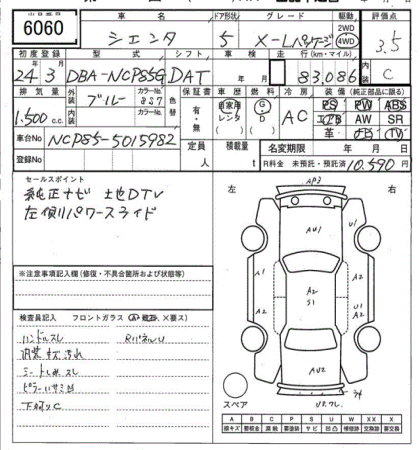 6060
車名 ドア形状 グレード 駆動 評価点
シエンタ 5 X-Lパッケージ 2WD 4WD 3.5
初度登録 型式 シフト 車検 走行(km・マイル) 内装
24年3月 DBA-NCP85G DAT 年 月 83,086 C
排気量 外装 カラーNo. 色替 保証書 車歴 燃料 冷房 装備(純正部品に限る)
1,500 c.c. ブルー 8S7 有・無 自家用 レンタ G D AC PS PW ABS
内装 カラーNo. エアB AW SR
革 ナビ TV
車台No NCP85-5015982 定員 人 積載量 t 名変期限 年 月 日
登録No R料金 未預託・預託済 10,590円
セールスポイント
純正ナビ 地デTV
左側パワースライド
左 右
※注意事項記入欄(修復・不具合箇所および状態等)
検査員記入 フロントガラス (A・飛石・×要ス)
ハンドルスレ RパネルU
内装キズ汚れ
シートしみスレ
ピラーハサミ凹
下廻りC
AP3
AU1
A1 A2 S1 A1 U1
A2 A2
AU2
スペア
A B C P S U W X XX
線キズ 要板金 腐食 要塗装 サビ 凹凸 補修跡 要交換